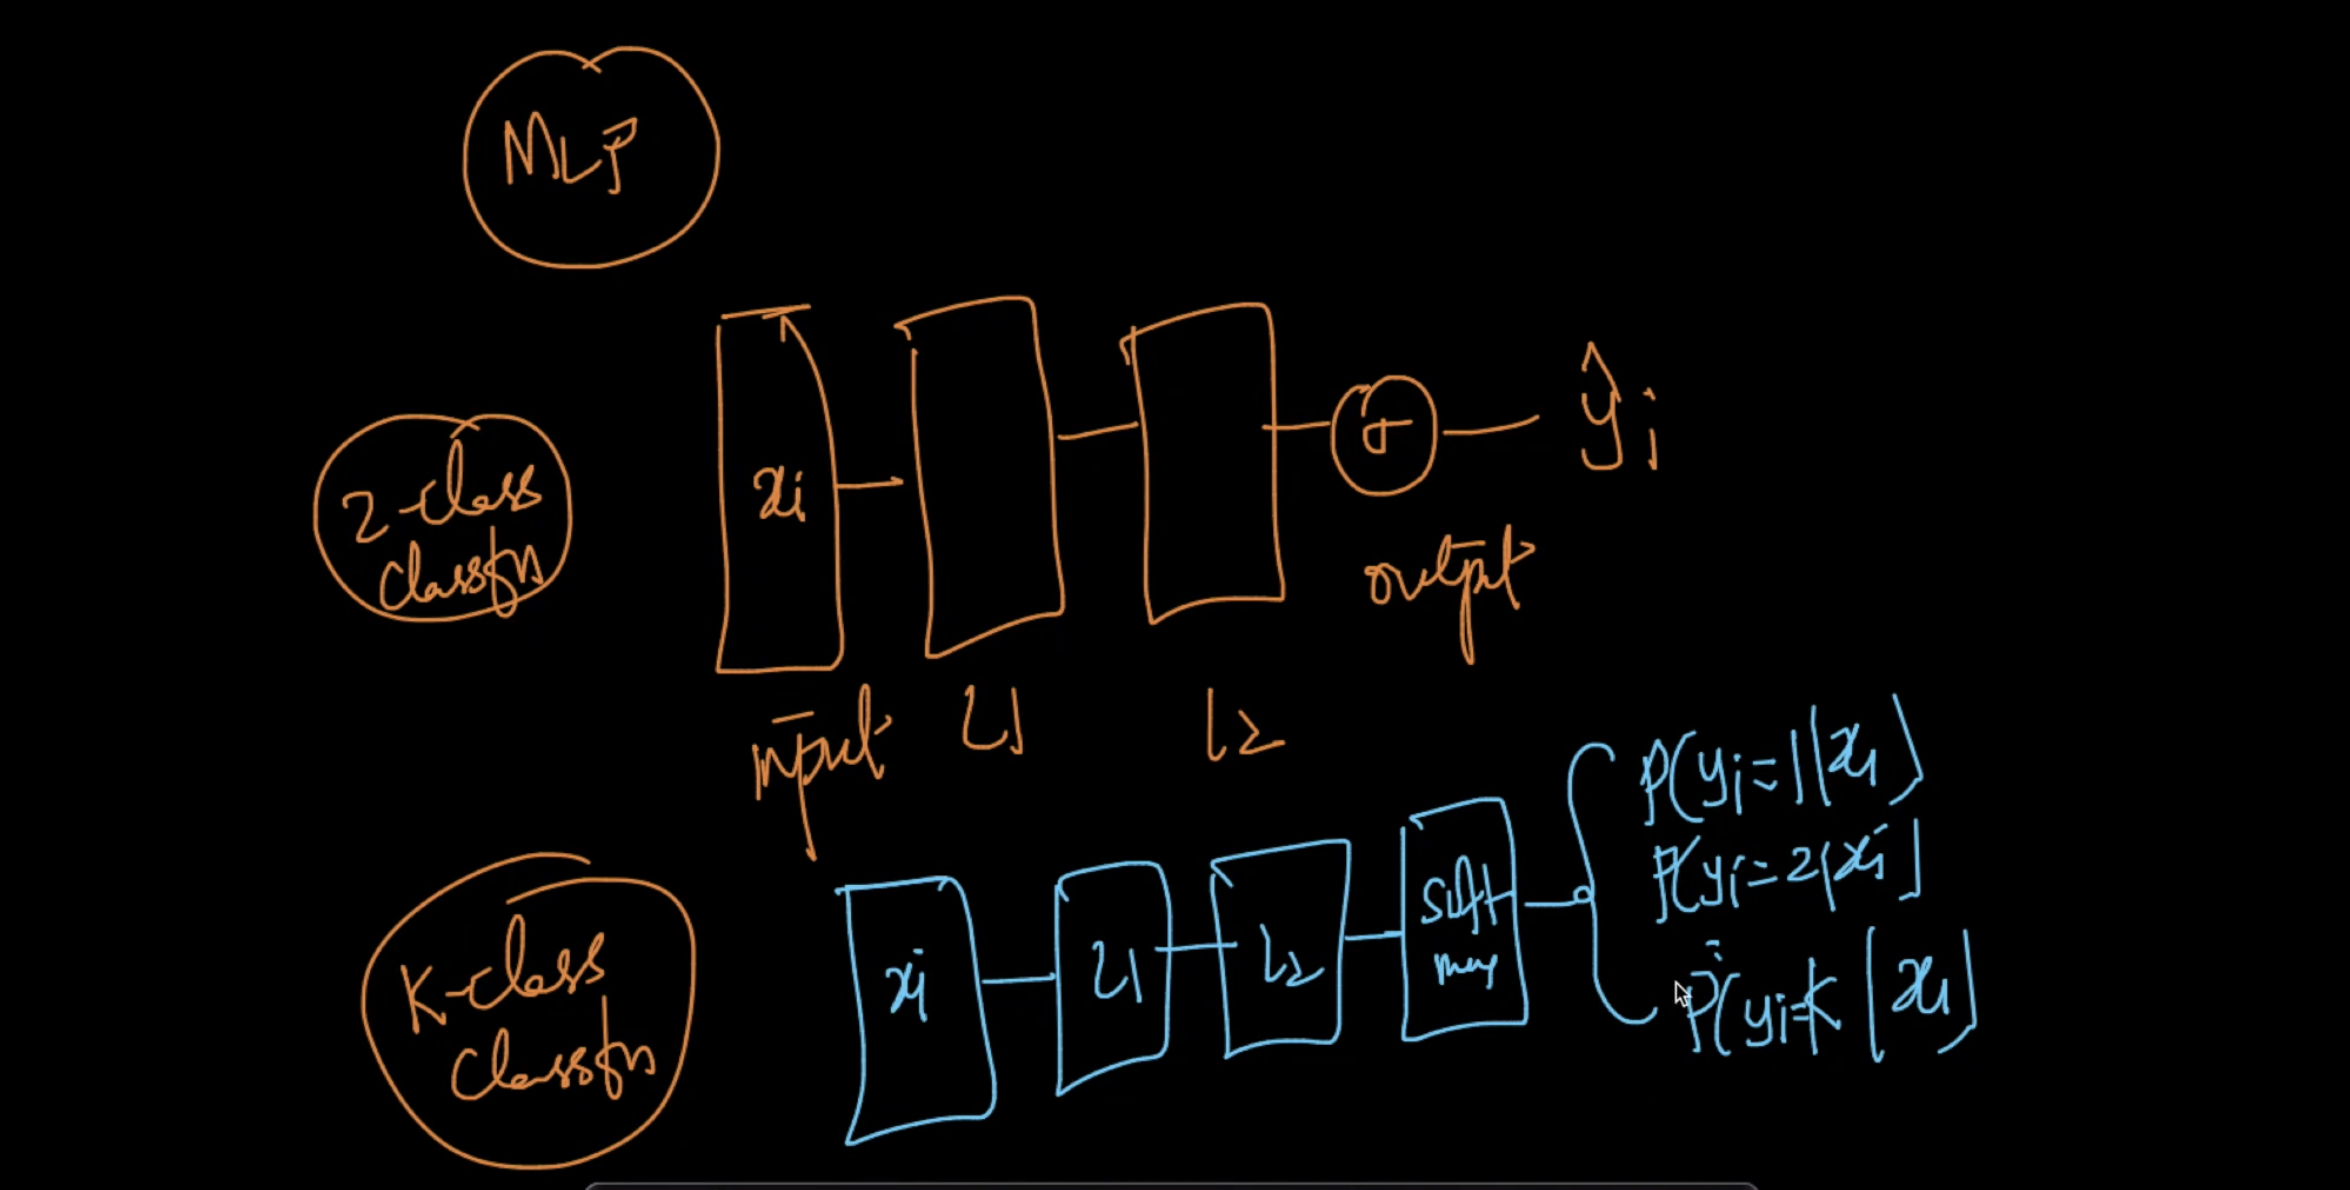 MLP
2-class
classfn
xi
σ
ŷi
output
input
L1
L2
K-class
classfn
xi
L1
L2
Soft
max
P(yi=1|xi)
P(yi=2|xi)
P(yi=K|xi)